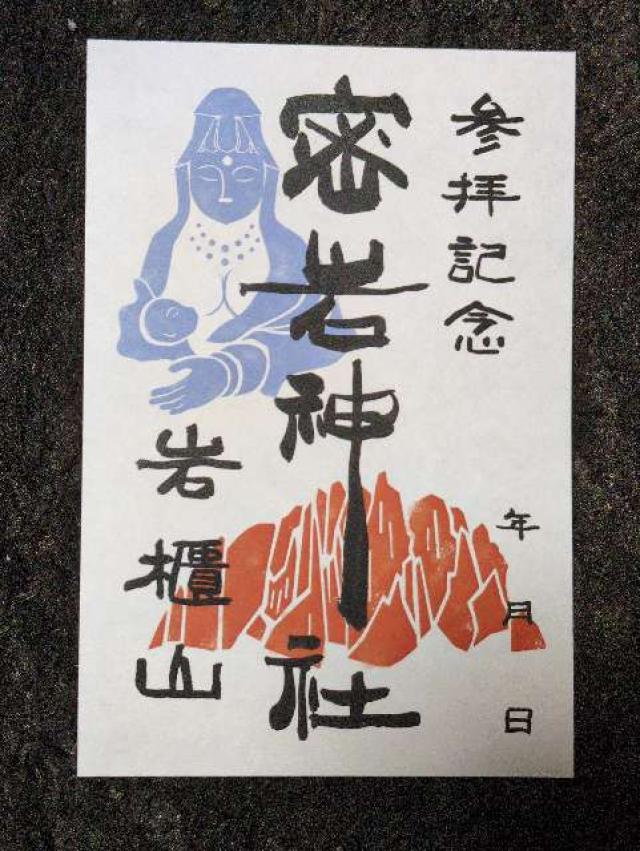 参拝記念
年月日
密岩神社
岩櫃山